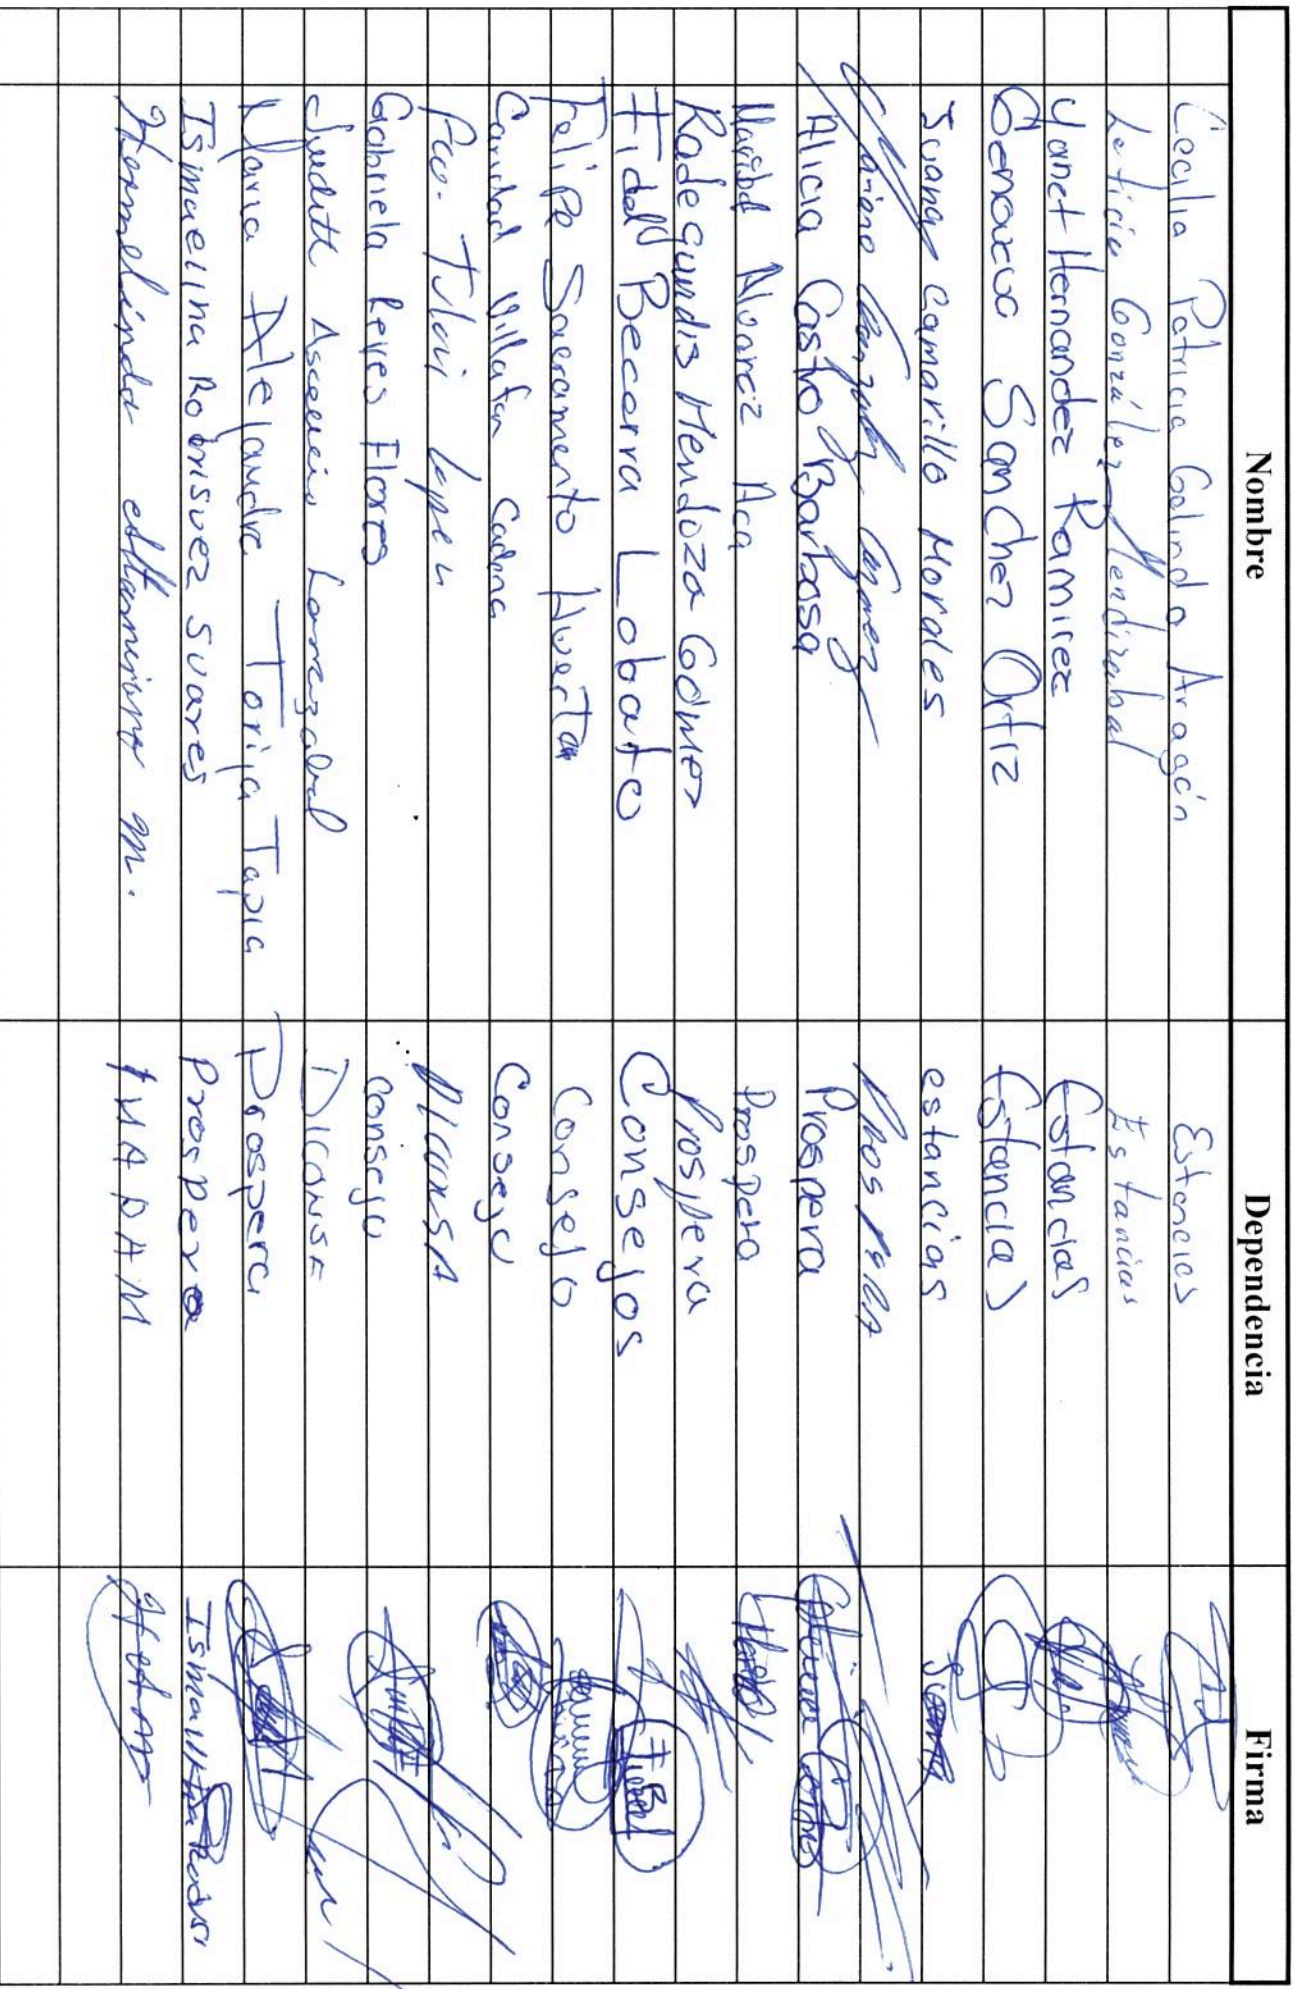 Nombre Dependencia Firma
Cecilia Patricia Galindo Aragón Estancias
Leticia González Mendizabal Estancias
Yanet Hernandez Ramirez Estancias
Genoveva Sanchez Ortiz Estancias
Juana Camarillo Morales estancias Juana
Prospera
Alicia Castro Barbosa Prospera
Maribel Alvarez Aca Prospera
Radegundis Mendoza Gómez Prospera
Fidel Becerra Lobato Consejos
Felipe Sacramento Consejo
Caridad Villafan Cadena Consejo
DICONSA
Gabriela Reyes Flores Consejo
Judith Ascencio DICONSA
Maria Alejandra Torija Tapia Prospera
Ismaelina Rodrisuez Suares Prospera
Hermelinda Altamirano M. INAPAM